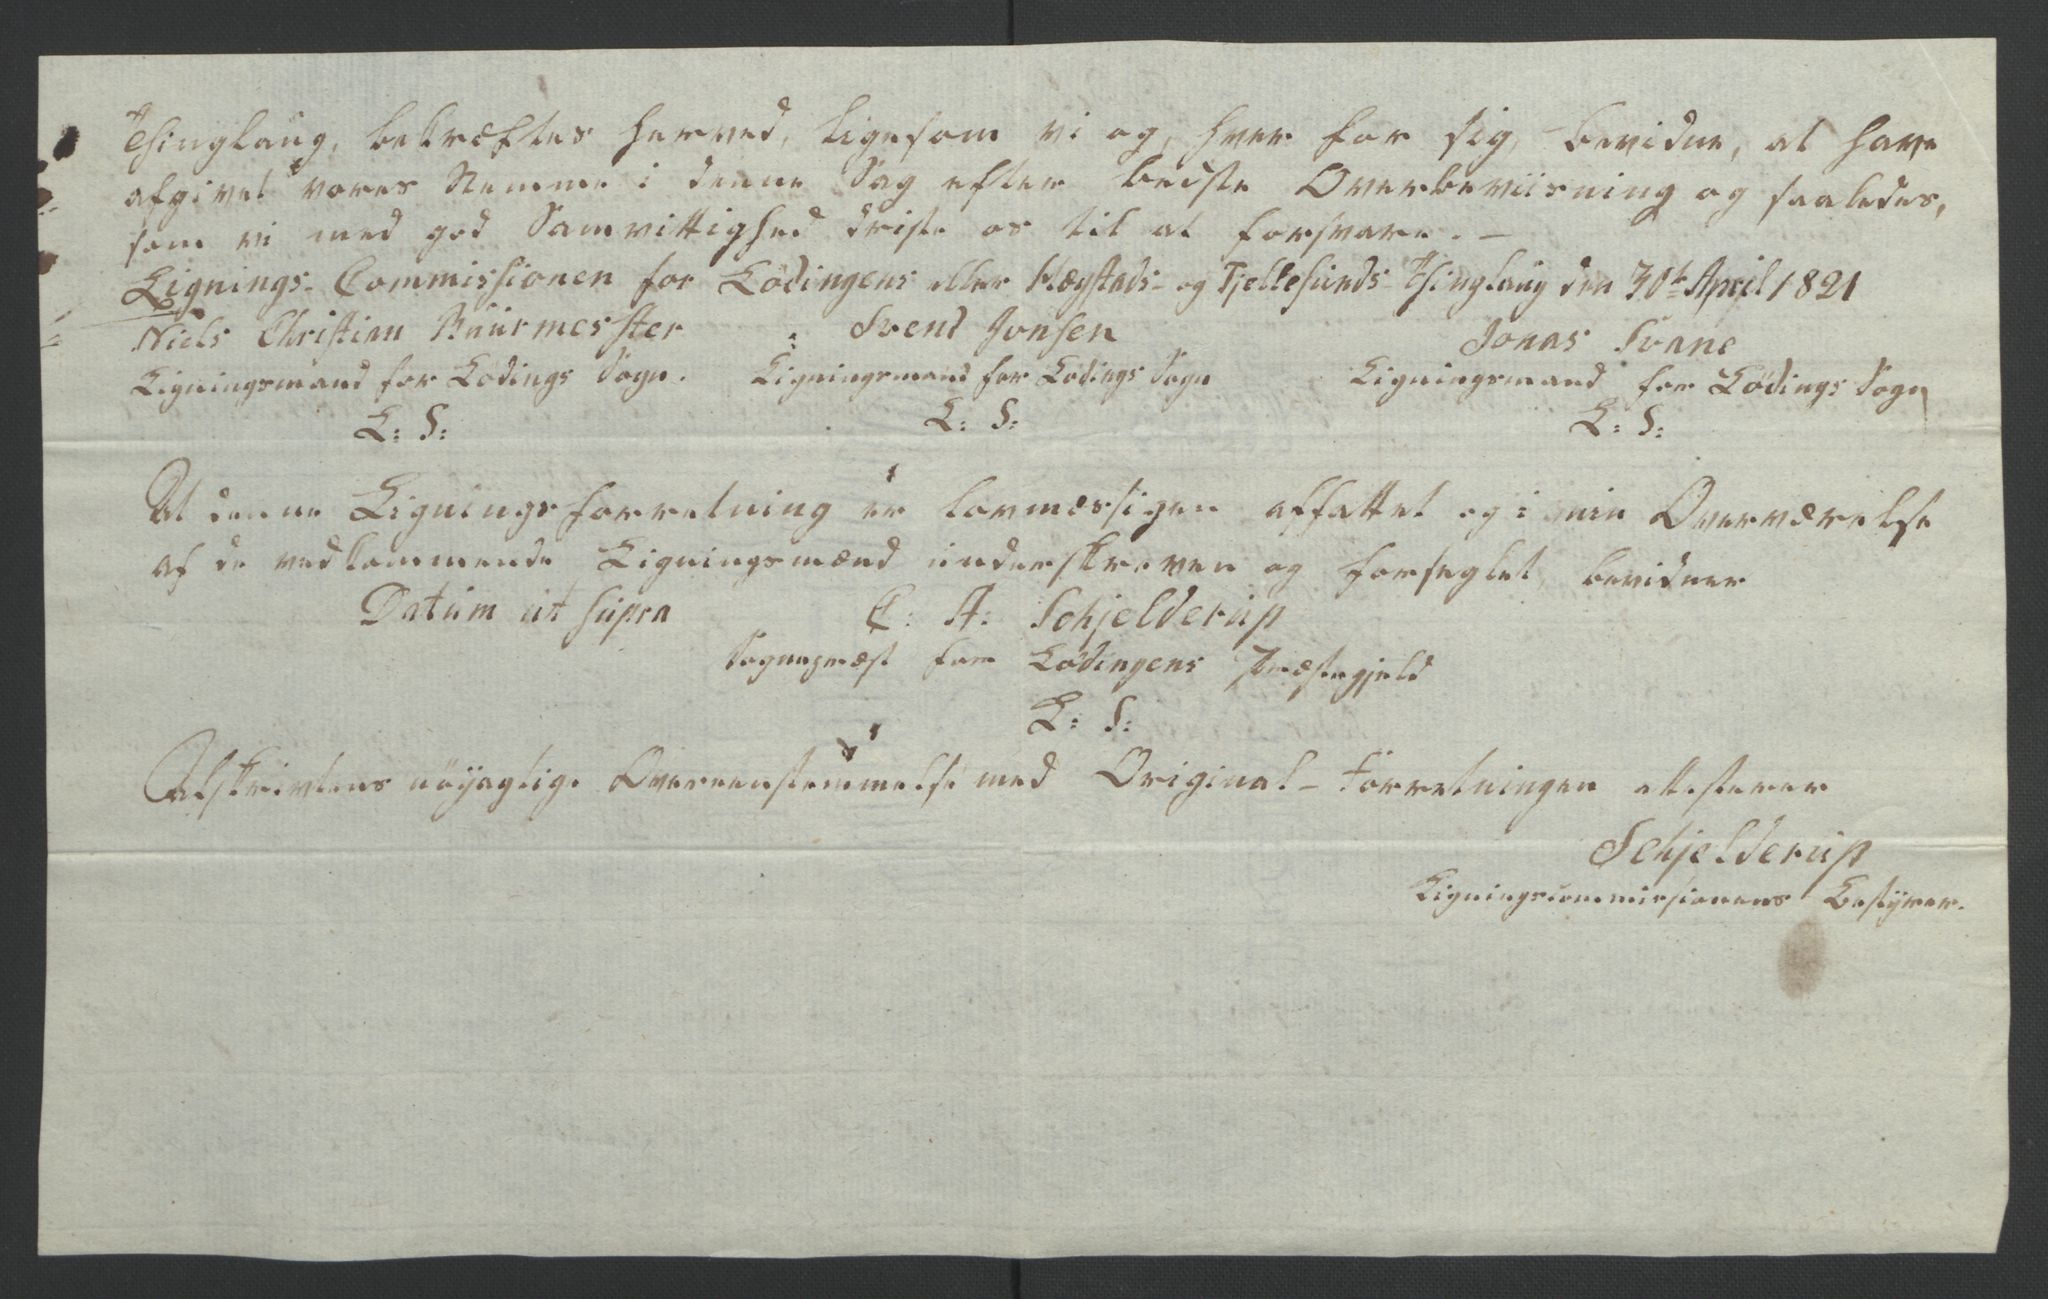 Thinglaug, bekræftes herved, ligesom vi og, hver for sig, bevidne, at have
afgivet vores Stemme i denne Sag efter bedste Overbeviisning og saaledes,
som vi med god Samvittighed driste os til at forsvare. -
Lignings-Commissionen for Lødingens eller Hægstads- og Tjellesunds-Thinglaug den 30te April 1821
Niels Christian Buurmester Svend Jonsen Jonas Svane
Ligningsmand for Lødings Sogn. Ligningsmand for Lødings Sogn Ligningsmand for Lödings Sogn
L: S: L: S: L: S:
At denne Ligningsforretning er lovmæssigen affattet og i min Overværelse
af de vedkommende Ligningsmænd underskreven og forseglet, bevidner
Datum ut supra C: A: Schjelderup
Sognepræst for Lødingens Præstegjeld
L: S:
Afskrivtens nöyagtige Overeenstemmelse med Original-Forretningen attesterer
Schjelderup
Ligningscommissionens Bestÿrer.